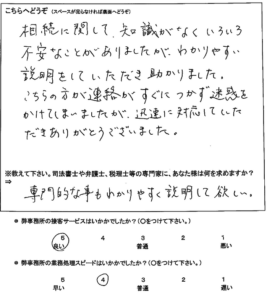 こちらへどうぞ（スペースが足りなければ裏面へどうぞ）
相続に関して、知識がなくいろいろ
不安なことがありましたが、わかりやすい
説明をしていただき助かりました。
こちらの方が連絡がすぐにつかず迷惑を
かけてしまいましたが、迅速に対応していた
だきありがとうございました。
※教えて下さい。司法書士や弁護士、税理士等の専門家に、あなた様は何を求めますか？
⇒
専門的な事もわかりやすく説明して欲しい。
* 弊事務所の接客サービスはいかがでしたか？（○をつけて下さい。）
5 4 3 2 1
良い 普通 悪い
* 弊事務所の業務処理スピードはいかがでしたか？（○をつけて下さい。）
5 4 3 2 1
早い 普通 遅い